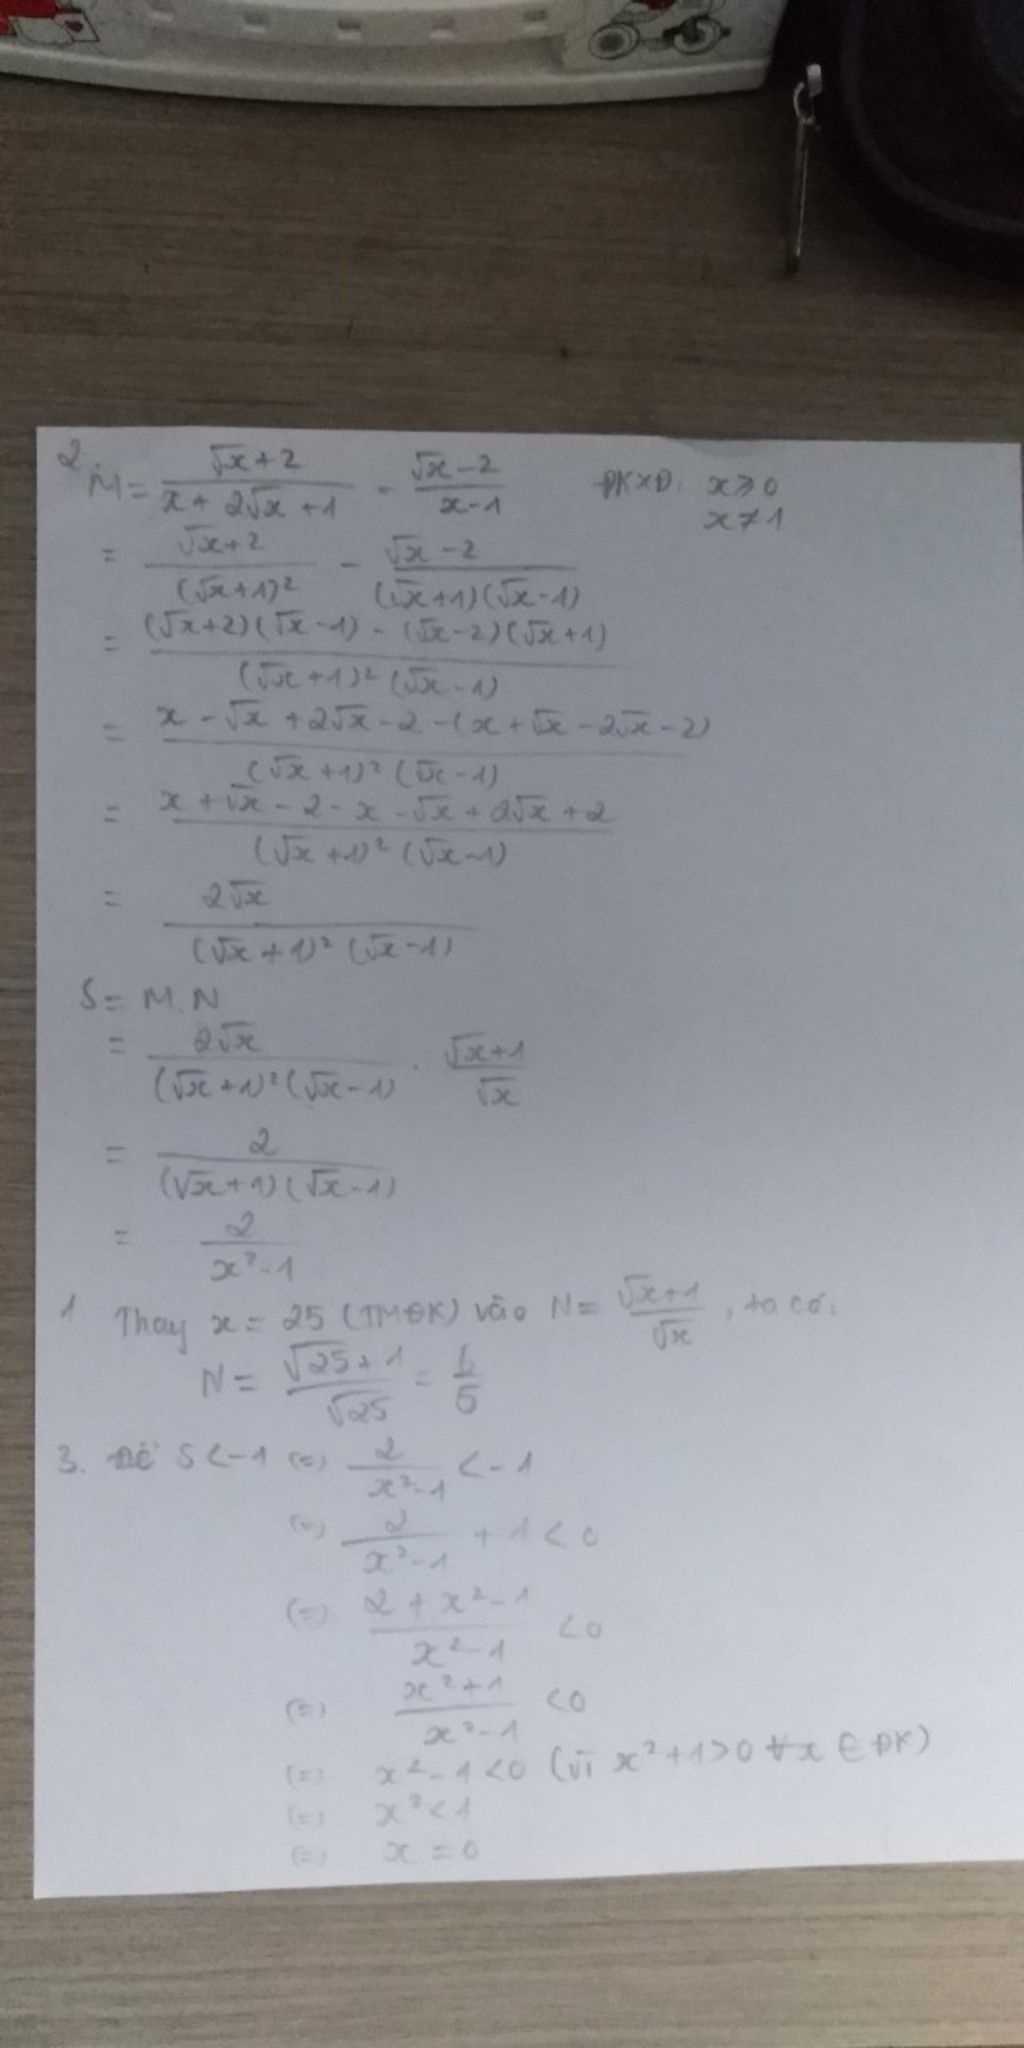 2 M = (√x+2)/(x+2√x+1) - (√x-2)/(x-1) ĐKXĐ: x ⩾ 0
x ≠ 1
= (√x+2)/(√x+1)² - (√x-2)/((√x+1)(√x-1))
= ((√x+2)(√x-1) - (√x-2)(√x+1))/((√x+1)²(√x-1))
= (x - √x + 2√x - 2 - (x + √x - 2√x - 2))/((√x+1)²(√x-1))
= (x + √x - 2 - x - √x + 2√x + 2)/((√x+1)²(√x-1))
= 2√x/((√x+1)²(√x-1))
S = M.N
= 2√x/((√x+1)²(√x-1)) . (√x+1)/√x
= 2/((√x+1)(√x-1))
= 2/(x²-1)
1 Thay x = 25 (TMĐK) vào N = (√x+1)/√x, ta có:
N = (√25+1)/√25 = 6/5
3. Để S < -1 (=) 2/(x²-1) < -1
(=) 2/(x²-1) + 1 < 0
(=) (2 + x² - 1)/(x²-1) < 0
(=) (x²+1)/(x²-1) < 0
(=) x² - 1 < 0 (vì x² + 1 > 0 ∀x ∈ ĐK)
(=) x² < 1
(=) x = 0